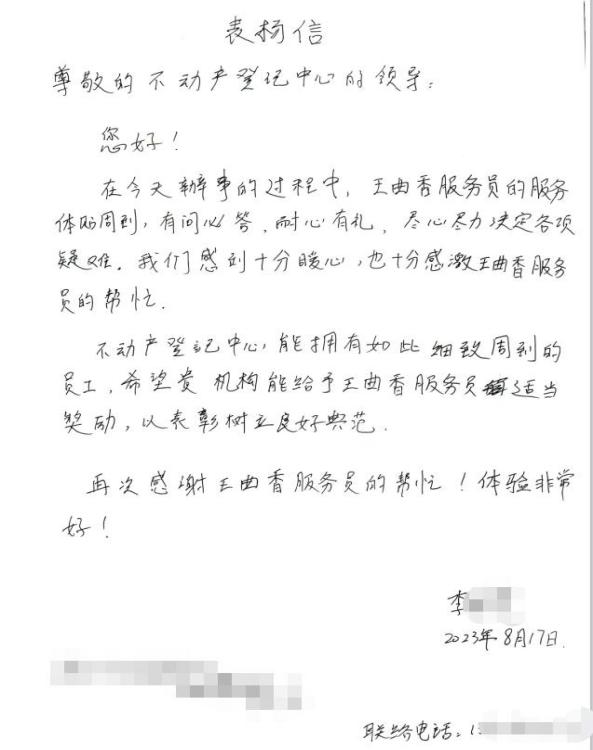 表扬信
尊敬的不动产登记中心的领导:
您好!
在今天辦事的过程中,王曲香服务员的服务
体贴周到,有问必答,耐心有礼,尽心尽力决定各项
疑难.我们感到十分暖心,也十分感激王曲香服务
员的帮忙.
不动产登记中心,能拥有如此细致周到的
员工,希望贵机构能给予王曲香服务员适当
奖励,以表彰树立良好典范.
再次感谢王曲香服务员的帮忙!体验非常
好!
李
2023年8月17日.
联络电话:1